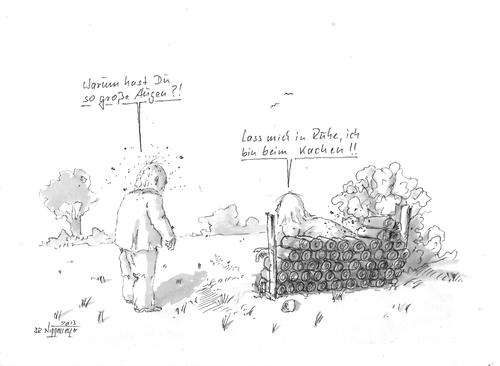 Warum hast Du
so große Augen?!
Lass mich in Ruhe, ich
bin beim Kacken!!
2013